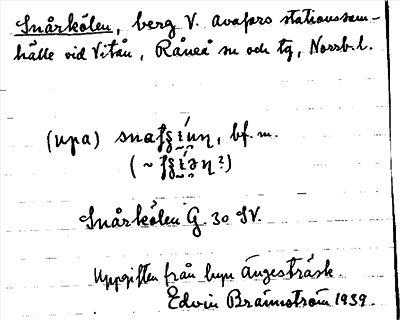 Snårkölen, berg V. Avafors stationssam-
hälle vid Vitån, Råneå sn och tg, Norrb. l.
(upa) bf. m.
(~ ?)
Snårkölen G. 30 SV.
Uppgiften från byn Ängesträsk.
Edvin Brännström 1939.